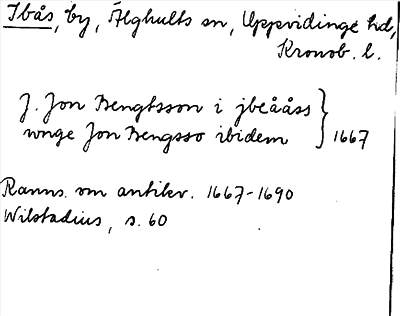 Ibås, by, Älghults sn, Uppvidinge hd,
Kronob. l.
J. Jon Bengtsson i jbeååss
unge Jon Bengsso ibidem } 1667
Ranns. om antikv. 1667-1690
Wilstadius, s. 60